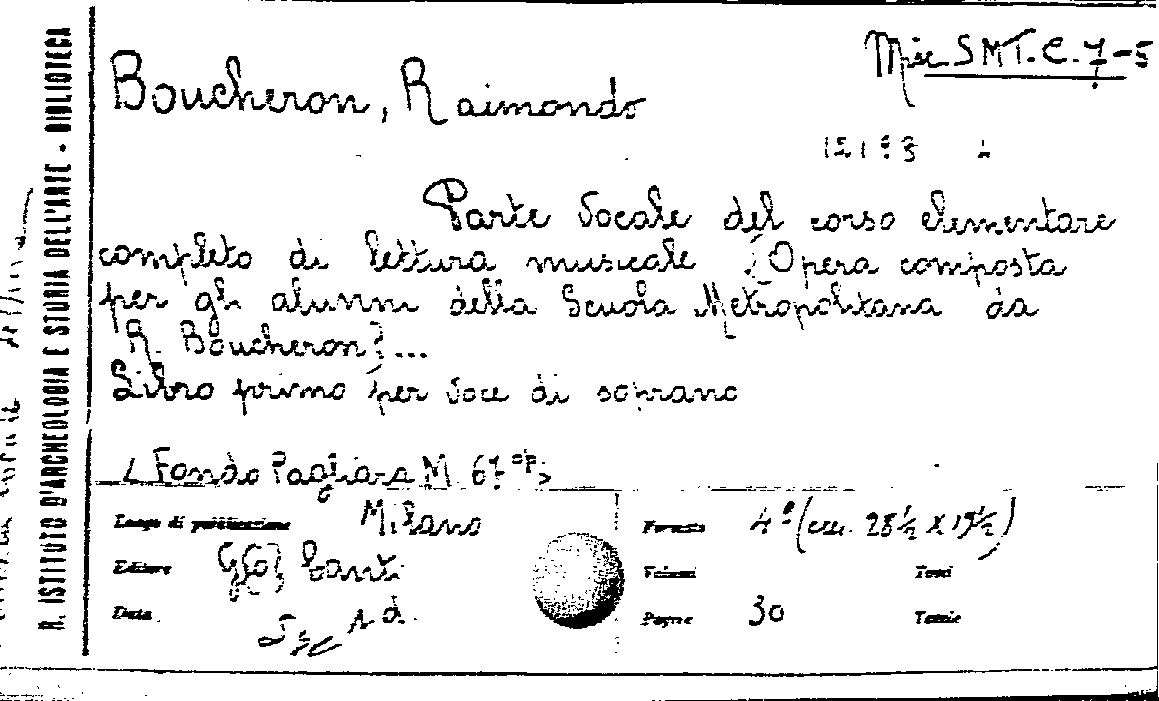 Misc. SMT. C. 7-5
Boucheron, Raimondo
Parte vocale del corso elementare
completo di lettura musicale [Opera composta
per gli alunni della Scuola Metropolitana da
R. Boucheron]...
Libro primo per voce di soprano
< Fondo Pagliara M 67 >
Luogo di pubblicazione Milano
Editore Canti
Data s. d.
Formato 4° (cm. 28½ X 19½)
Volumi Tomi
Pagine 30 Tavole
R. ISTITUTO D'ARCHEOLOGIA E STORIA DELL'ARTE - BIBLIOTECA